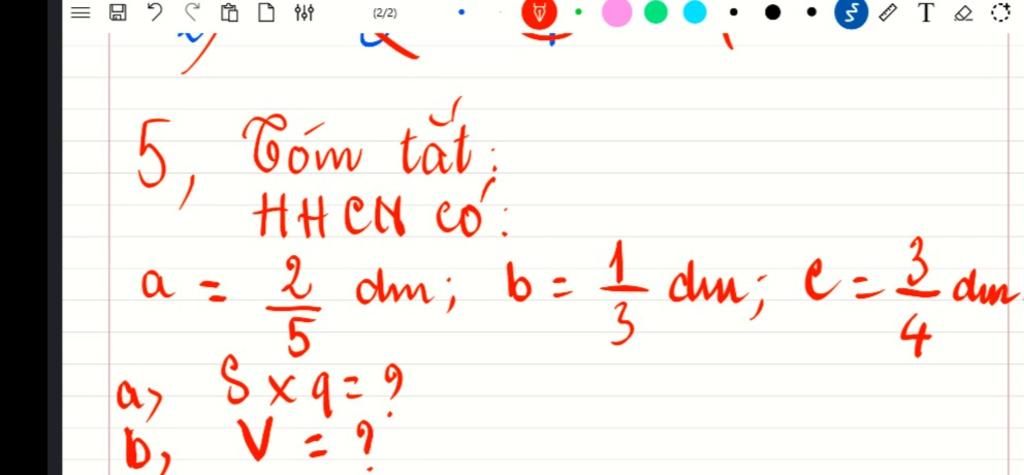 (2/2)
T
5, Tóm tắt:
HHCN có:
a = 2/5 dm; b = 1/3 dm; c = 3/4 dm
a, Sxq = ?
b, V = ?